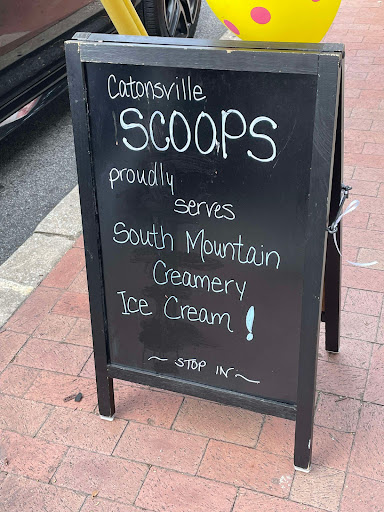 Catonsville
SCOOPS
proudly
serves
South Mountain
Creamery
Ice Cream!
~ STOP IN ~